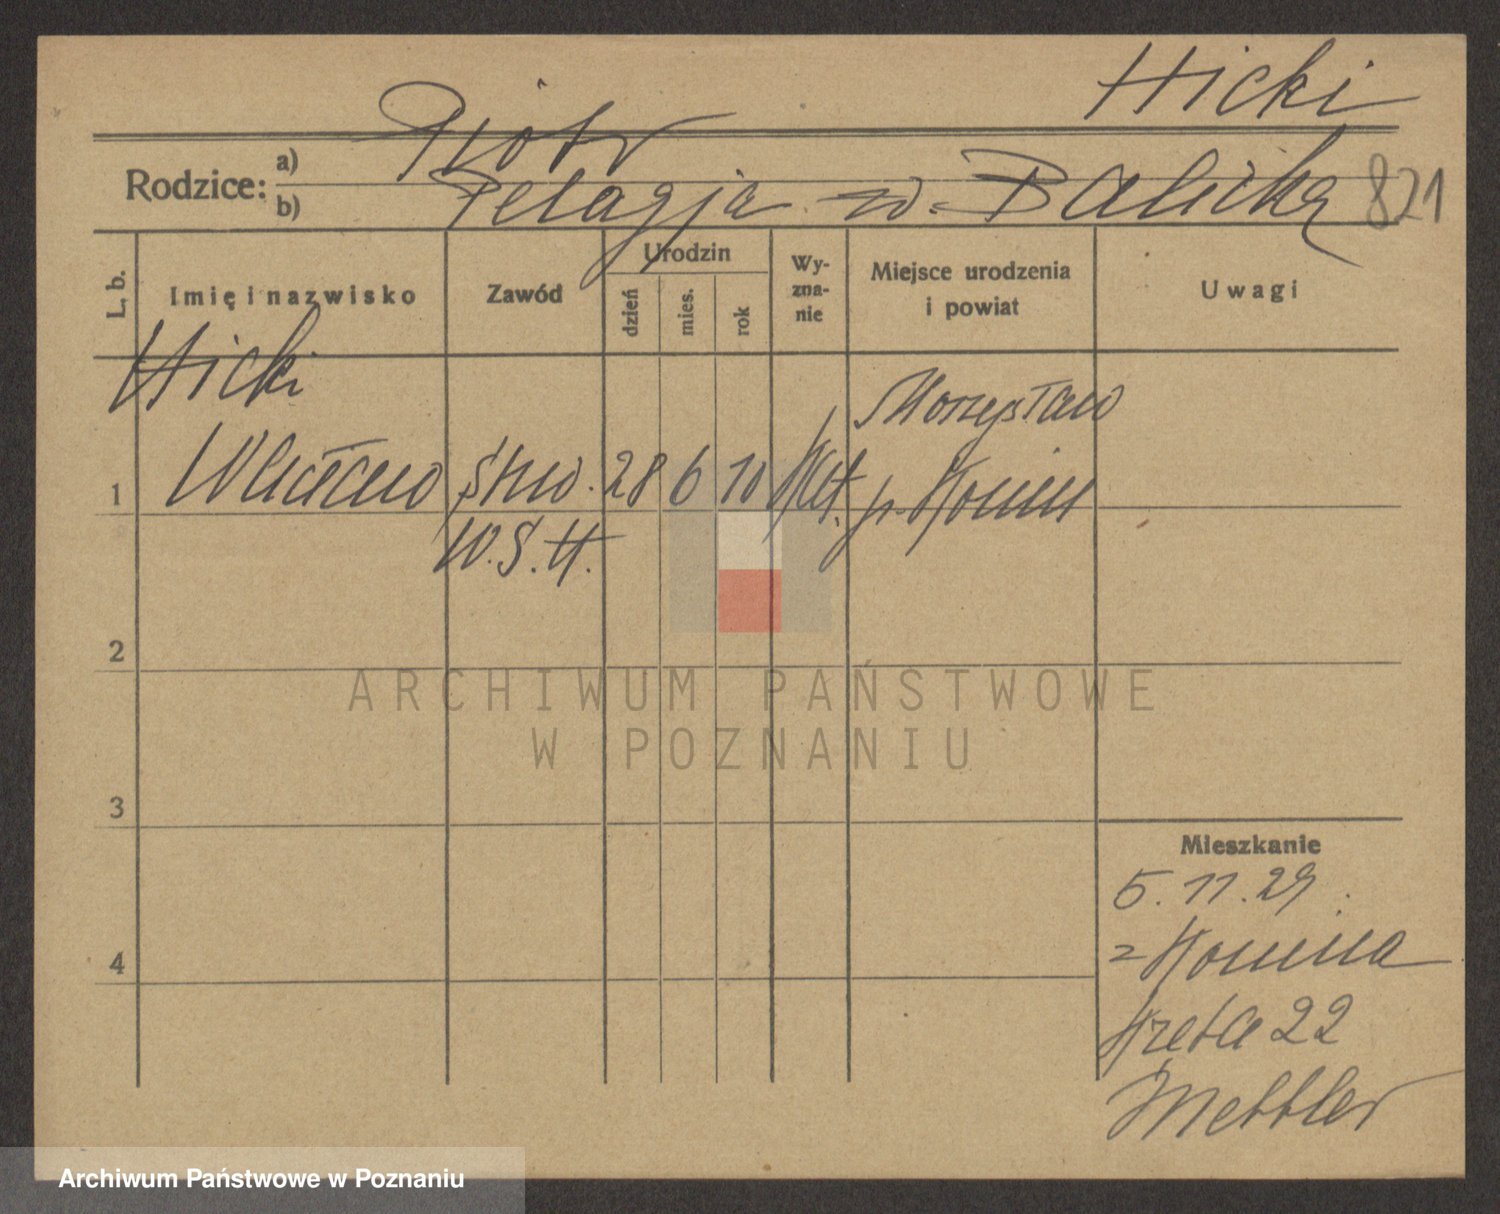 Hicki
Rodzice: a) Piotr
b) Pelagja z d. Balicka 821
L. b.
Imię i nazwisko
Zawód
Urodzin
dzień
mies.
rok
Wy-
zna-
nie
Miejsce urodzenia
i powiat
Uwagi
Hicki
Morzysław
1 Wacław 28 6 10 p. Konin
W.S.H.
2
3
4
Mieszkanie
5.11.29
z Konina
22
Mettler
ARCHIWUM PAŃSTWOWE
W POZNANIU
Archiwum Państwowe w Poznaniu